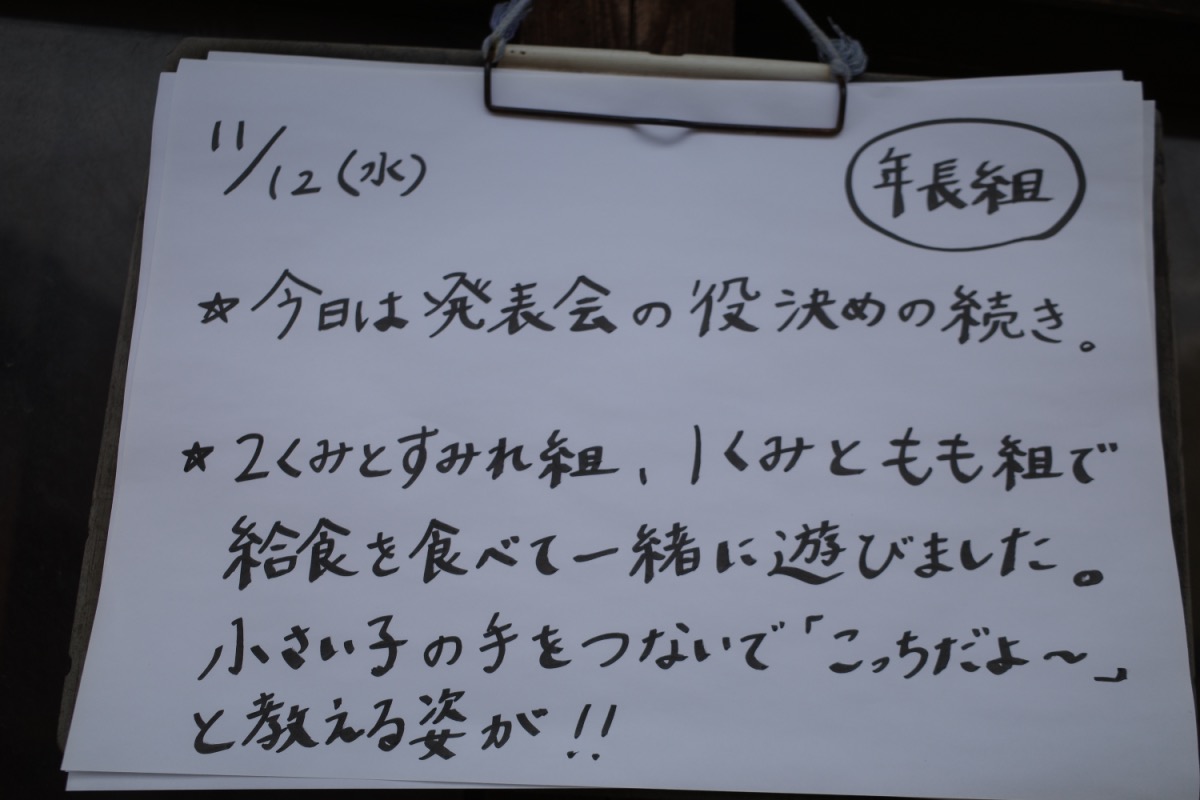 11/12(水)
年長組
☆今日は発表会の役決めの続き。
☆2くみとすみれ組、1くみともも組で
給食を食べて一緒に遊びました。
小さい子の手をつないで「こっちだよ~」
と教える姿が!!